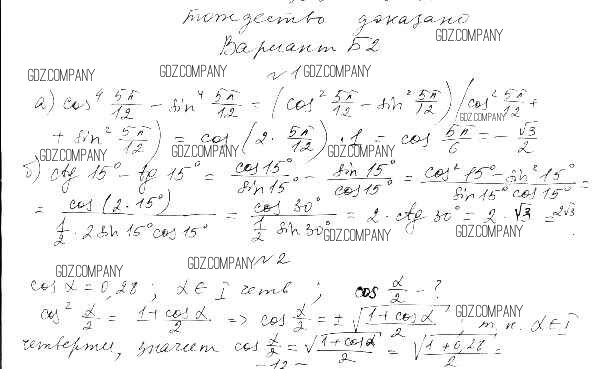 тождество доказано
GDZ.COMPANY
Вариант Б2
GDZ.COMPANY GDZ.COMPANY GDZ.COMPANY
№1
а) cos⁴ 5π/12 - sin⁴ 5π/12 = (cos² 5π/12 - sin² 5π/12)(cos² 5π/12 +
GDZ.COMPANY
+ sin² 5π/12) = cos (2 · 5π/12) · 1 = cos 5π/6 = - √3/2
GDZ.COMPANY GDZ.COMPANY GDZ.COMPANY
б) ctg 15° - tg 15° = cos 15°/sin 15° - sin 15°/cos 15° = (cos² 15° - sin² 15°)/(sin 15° cos 15°) =
= cos (2 · 15°)/(1/2 · 2 sin 15° cos 15°) = cos 30°/(1/2 sin 30°) = 2 · ctg 30° = 2 · √3 = 2√3
GDZ.COMPANY GDZ.COMPANY
№2
GDZ.COMPANY
cos α = 0,28 ; α ∈ I четв ; cos α/2 - ?
cos² α/2 = (1 + cos α)/2 => cos α/2 = ± √((1 + cos α)/2), т.к. α ∈ I
GDZ.COMPANY GDZ.COMPANY
четверти, значит cos α/2 = √((1 + cos α)/2) = √((1 + 0,28)/2) =
- 12 -